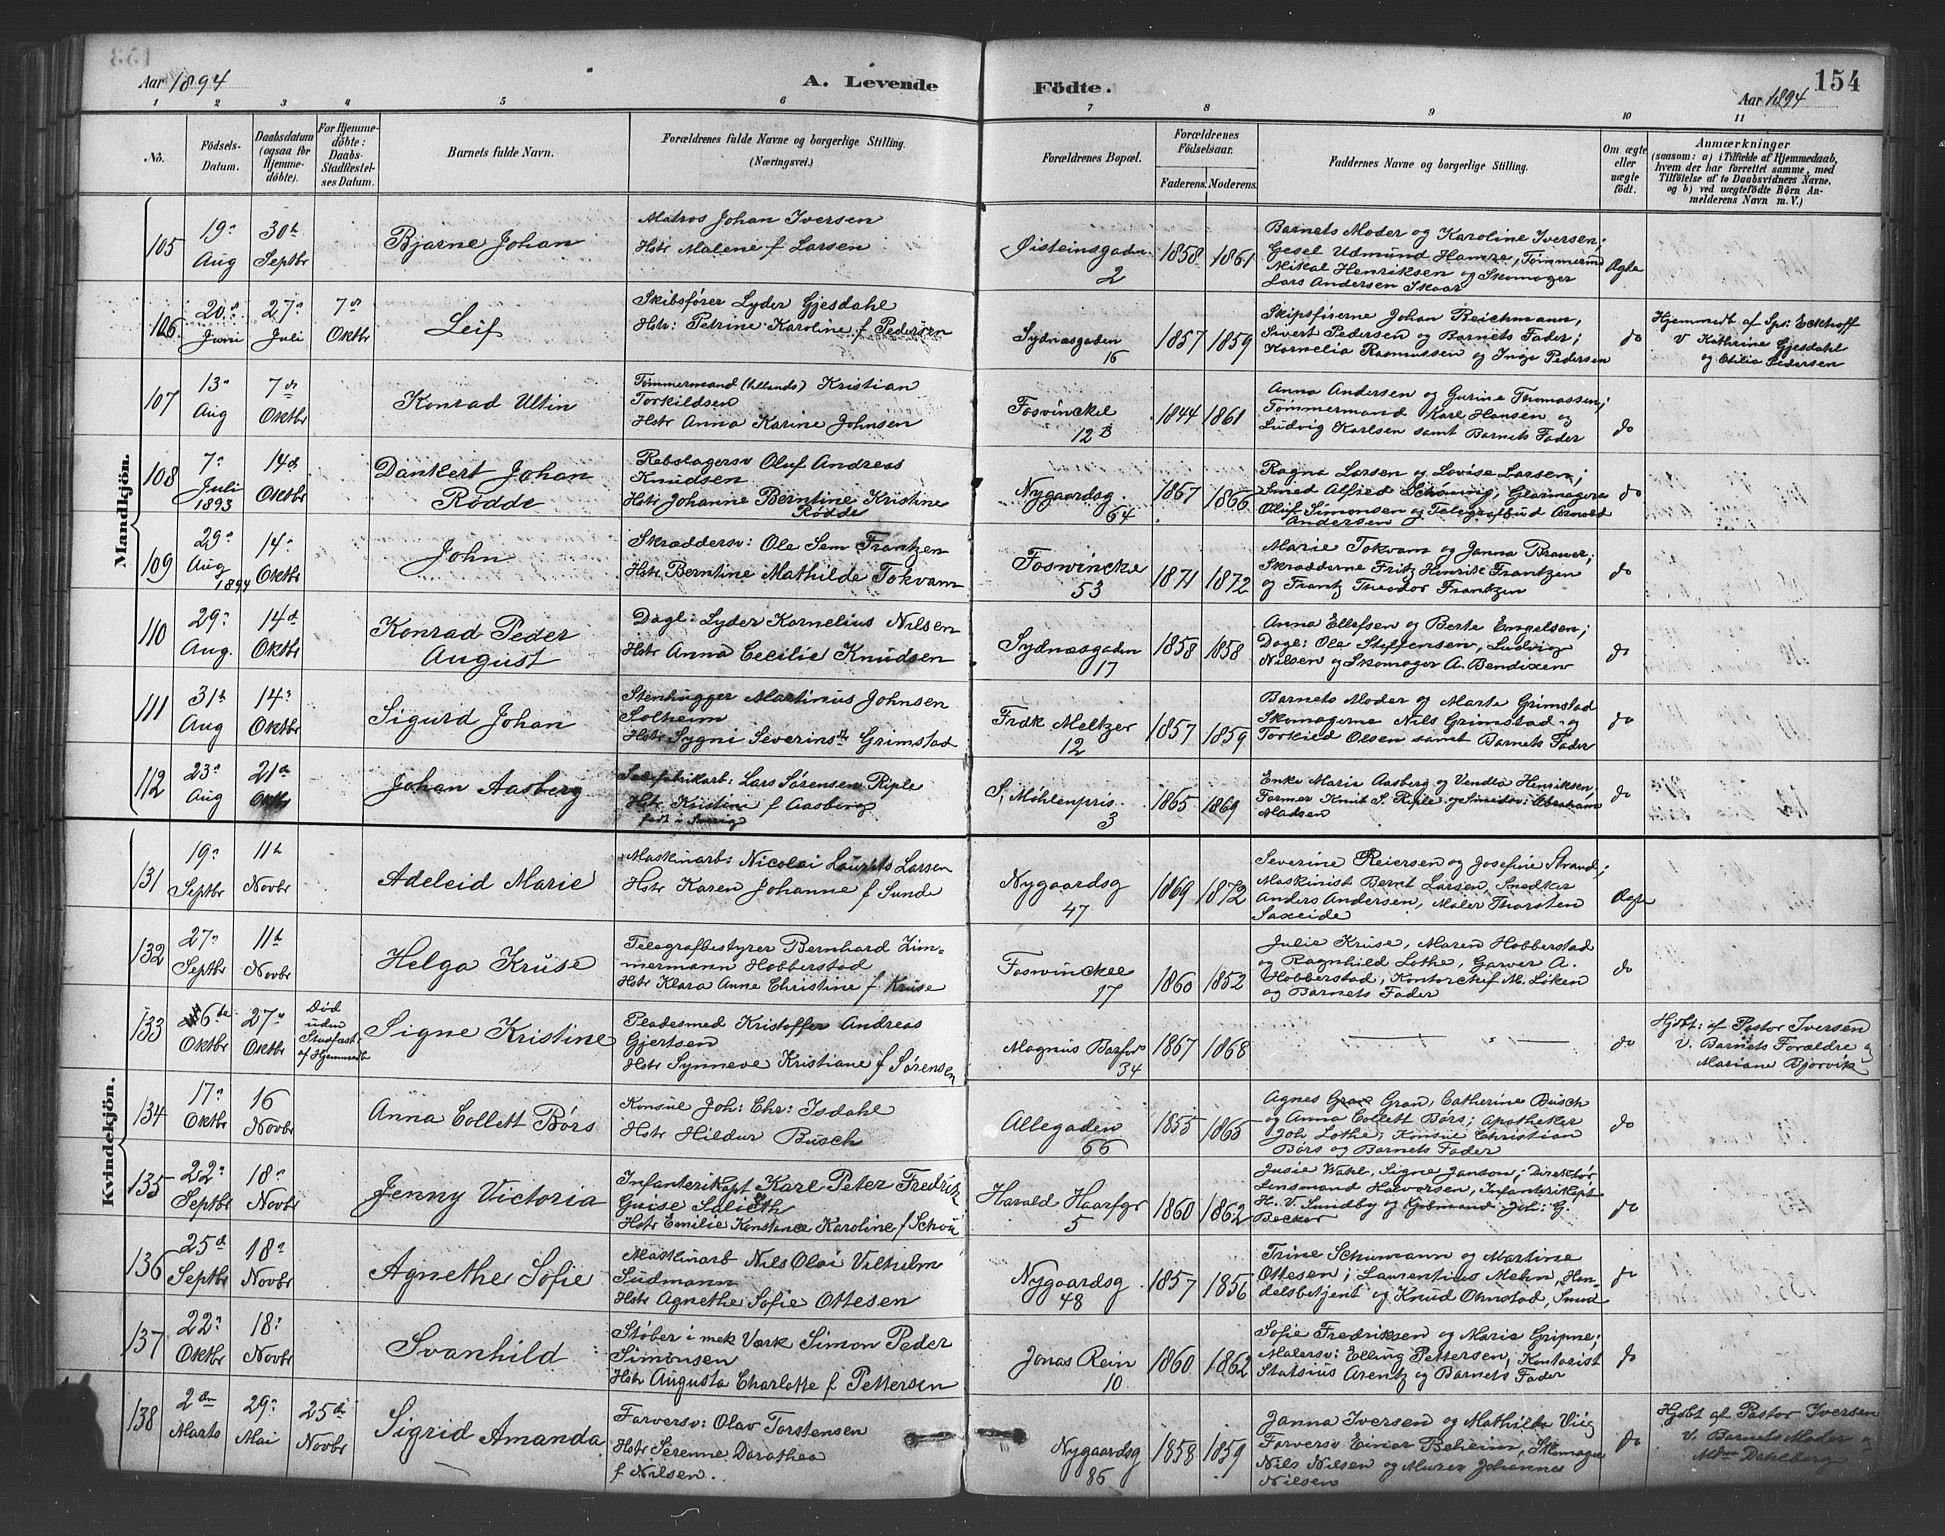 Aar 1894
A. Levende
Födte.
154
Aar 1894
1 2 3 4 5 6 7 8 9 10 11
No.
Födsels-
Datum.
Daabsdatum
(ogsaa for
Hjemme-
döbte).
For Hjemme-
döbte:
Daabs-
Stadfæstel-
ses Datum.
Barnets fulde Navn.
Forældrenes fulde Navne og borgerlige Stilling.
(Næringsvei.)
Forældrenes Bopæl.
Forældrenes
Födselsaar.
Faderens. Moderens.
Faddernes Navne og borgerlige Stilling.
Om ægte
eller
uægte
födt.
Anmærkninger
(saasom: a) i Tilfælde af Hjemmedaab,
hvem der har forrettet samme, med
Tilföielse af to Daabsvidners Navne,
og b) ved uægtefödte Börn An-
melderens Navn m. V.)
Mandkjön.
105
19de
Aug
30te
Septbr
Bjarne Johan
Matros Johan Iversen
Hstr Malene f. Larsen
Øisteinsgaden
2
1858
1861
Barnets Moder og Karoline Iversen;
Gesel Udmund Hamre, Tömmermd
Mikal Henriksen og Skomager
Lars Andersen Skaar
Ægte
106
20de
Juni
27de
Juli
7de
Oktbr
Leif
Skibsfører Lyder Gjesdahl
Hstr: Petrine Karoline f Pedersen
Sydnæsgaden
16
1857
1859
Skipsförerne Johan Reichmann,
Sivert Pedersen og Barnets Fader;
Kornelia Rasmussen og Inga Pedersen
do
Hjemmedt af Spr: Eckhoff
v Kathrine Gjesdahl
og Otilia Pedersen
107
13de
Aug
7de
Oktbr
Konrad Ultin
Tømmermand (tillands) Kristian
Torkildsen
Hstr Anna Karine Johnsen
Fosvinckel
12 B
1844
1861
Anna Andersen og Gurine Thomassen;
Tömmermand Karl Hansen og
Ludvig Karlsen samt Barnets Fader
do
108
7de
Juli
1893
14de
Oktbr
Dankert Johan
Rødde
Rebslagersv Oluf Andreas
Knudsen
Hstr Johanne Berntine Kristine
Rødde
Nygaardsg.
64
1867
1866
Ragna Larsen og Lovise Larsen;
Smed Alfred Schöning, Glarmagere
Oluf Simonsen og Telegrafbud Arnold
Andersen
do
109
29de
Aug
1894
14de
Oktbr
John
Skræddersv: Ole Sem Frantzen
Hstr Berntine Mathilde Tokvam
Fosvincke
53
1871
1872
Marie Tokvam og Janna Brawer;
Skrædderne Fritz Henrik Frantzen
og Frantz Theodor Frantzen
do
110
29de
Aug.
14de
Oktbr
Konrad Peder
August
Dagl: Lyder Kornelius Nilsen
Hstr Anna Cecilie Knudsen
Sydnæsgaden
17
1858
1858
Anna Ellefsen og Berte Engelsen;
Dagl: Ole Steffensen, Ludvig
Nilsen og Skomager A. Bendixen
do
111
31te
Aug
14de
Oktbr
Sigurd Johan
Stenhugger Martinus Johnsen
Solheim
Hstr Sygni Severinsdtr Grimstad
Fredk Meltzer
12
1857
1859
Barnets Moder og Marte Grimstad
Skomagerne Nils Grimstad og
Torkild Olsen samt Barnets Fader
do
112
23de
Aug
21de
Oktbr
Johan Aasberg
Lars Sørensen Riple
Hstr Kristine f Aasberg
S. Möhlenpris.
3
1865
1869
Enke Marie Aasberg og Vendla Henriksen;
Former Knut S. Riple og Smedsv: Abraham
Madsen
do
Kvindekjön.
131
19de
Septbr
11te
Novbr
Adeleid Marie
Maskinarb: Nicolai Laurits Larsen
Hstr Karen Johanne f Sunde
Nygaardsg
47
1869
1872
Severine Reiersen og Josefine Strand;
Maskinist Bernt Larsen, Snedker
Anders Andersen, Maler Thorsten
Saxeide
Ægte
132
27de
Septbr
11te
Novbr
Helga Kruse
Telegrafbestyrer Bernhard Zim-
mermann Hobberstad
Hstr Klara Anne Christine f Kruse
Fosvinckel
17
1860
1852
Julie Kruse, Maren Hobberstad
og Ragnhild Lothe, Garver A.
Hobberstad, Kontorchef M. Løken
og Barnets Fader
do
133
6te
Oktbr
27de
Oktbr
Død
uden
Stadfæst
af Hjemmedt
Signe Kristine
Pladesmed Kristoffer Andreas
Gjertsen
Hstr Synneve Kristiane f Sørensen
Magnus Barfod
34
1867
1868
do
Hjdbt: af Pastor Iversen
v. Barnets Forældre og
Mariane Bjorvik
134
17de
Oktbr
16
Novbr
Anna Collett Börs
Konsul Joh: Chr: Isdahl
Hstr Hildur Busch
Allegaden
66
1855
1865
Agnes Gran, Catherine Busch
og Anna Collett Börs; Apotheker
Joh Lothe, Konsul Christian
Börs og Barnets Fader
do
135
22de
Septbr
18de
Novbr
Jenny Victoria
Infanterikapt Karl Peter Fredrik
Hstr Emilie Konstance Karoline f Schou
Harald Haarfgr
5
1860
1862
Wahl, Signe Janson; Direktör
Halvorsen, Infanterikapt
H. V. Sundby og Kjöbmand Joh: G.
Becker
do
136
25de
Septbr
18de
Novbr
Agnethe Sofie
Maskinarb Nils Olai Vilhelm
Sudmann
Hstr Agnethe Sofie Ottesen
Nygaardsg
48
1857
1856
Trine Schumann og Martine
Ottesen; Laurentius Mehn, Han-
delsbetjent og Knud Ohnstad, Smed
do
137
22de
Oktbr
18de
Novbr
Svanhild
Støber i mek Værk Simon Peder
Simonsen
Hstr Augusta Charlotte f Pettersen
Jonas Rein
10
1860
1862
Sofie Fredriksen og Marie Gripne;
Malersv: Elling Pettersen, Kontorist
Statsius Arentz og Barnets Fader
do
138
2den
Marts
29de
Mai
25de
Novbr
Sigrid Amanda
Farversv: Olav Torstensen
Hstr Serenne Dorothea
f Nilsen.
Nygaardsg
86
1858
1859
Janna Iversen og Mathilde Viig
Farversv Einar Beheim, Skomager
Nils Nilsen og Murer Johannes
Nilsen
do
Hjdbt af Pastor Iversen
v. Barnets Moder og
Mdm Dahlberg